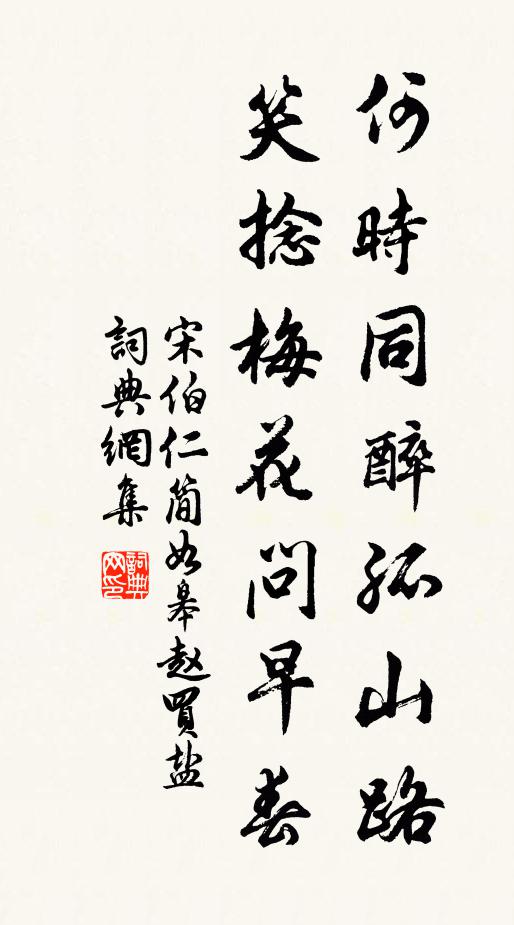 何時同醉孤山路
笑捻梅花問早春
宋伯仁簡如皋趙買盐
詞典網集
詞典
网印